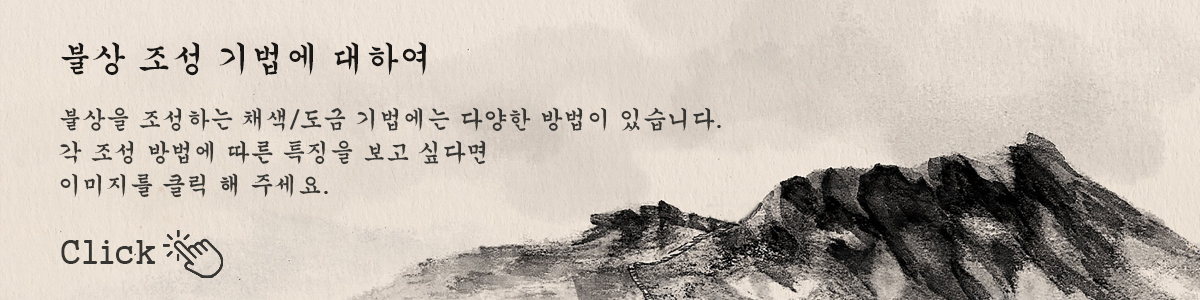 불상 조성 기법에 대하여
불상을 조성하는 채색/도금 기법에는 다양한 방법이 있습니다.
각 조성 방법에 따른 특징을 보고 싶다면
이미지를 클릭 해 주세요.
Click